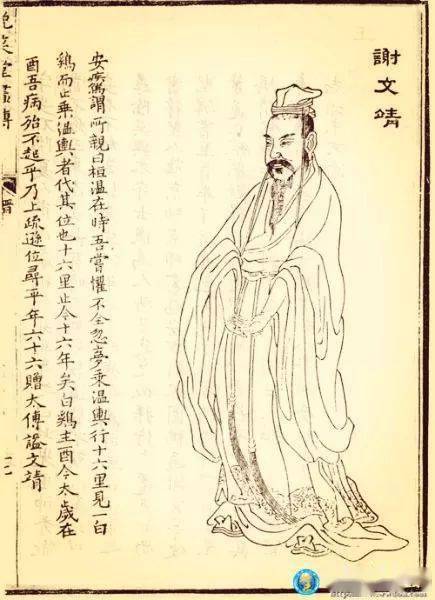 謝文靖
安疾篤謂所親曰桓温在時吾嘗懼不全忽夢乘温輿行十六里見一白
鷄而止乘温輿者代其位也十六里止今十六年矣白鷄主酉今太歲在
酉吾病殆不起乎乃上疏遜位尋卒年六十六贈太傅諡文靖
晚笑堂畫傳
晉